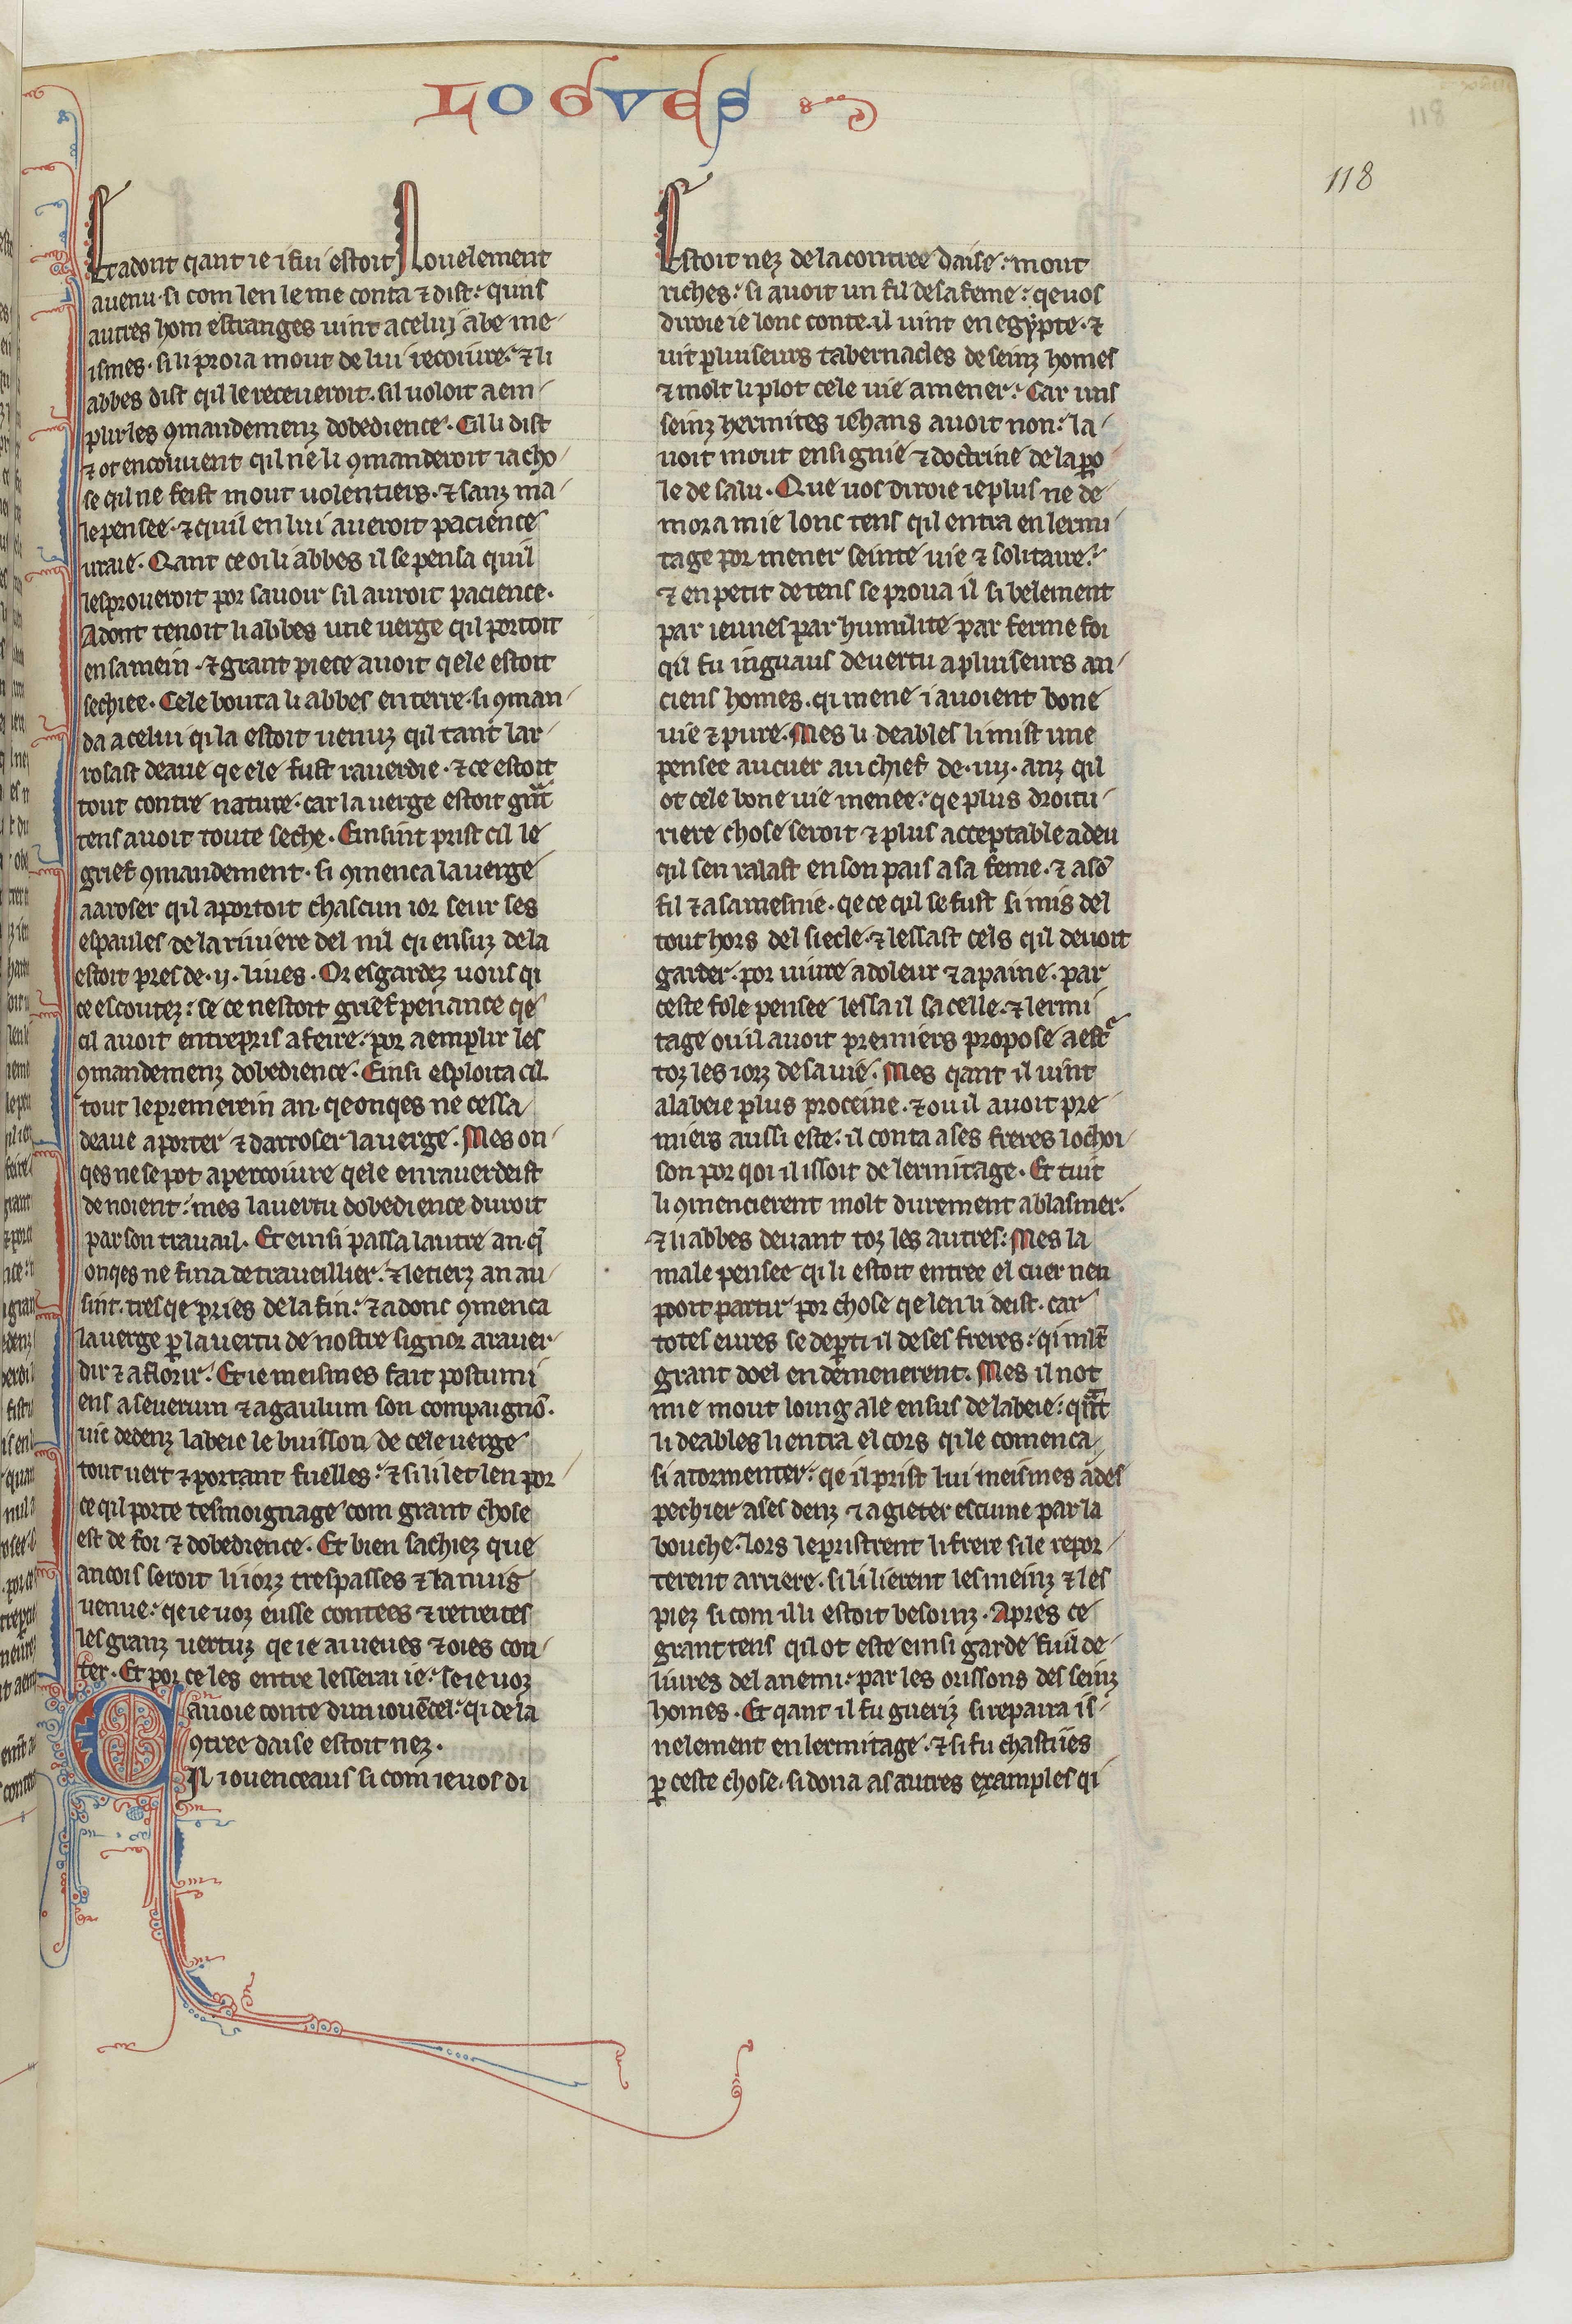 LOGVES
118
118
Et adont qant ie i fui estoit Nouelement
auenu· si com len le me conta ⁊ dist· quns
autres hom estranges uint a celui abe me-
ismes· si li proia mout de lui recoiure· ⁊ li
abbes dist qil le receueroit· sil uoloit aem-
plir les ꝯmandemenz dobedience· Cil li dist
⁊ ot encouuent qil ne li ꝯmanderoit ia cho-
se qil ne feist mout uolentiers· ⁊ sanz ma-
le pensee· ⁊ quil en lui aueroit pacience
uraie· Qant ce oi li abbes il se pensa quil
lesproueroit por sauoir sil auroit pacience·
Adont tenoit li abbes une uerge qil portoit
en sa mein· ⁊ grant piece auoit qele estoit
sechiee· Cele bouta li abbes en terre· si ꝯman-
da a celui qi la estoit uenuz qil tant lar-
rosast deaue qe ele fust rauerdie· ⁊ ce estoit
tout contre nature· car la uerge estoit gͣnt
tens auoit toute seche· Einsint prist cil le
grief ꝯmandement· si ꝯmenca la uerge
a aroser qil aportoit chascun ior seur ses
espaules de la riuiere del nil qi ensuz de la
estoit pres de· ii· liues· Or esgardez uous qi
ce escoutez· se ce nestoit grief penance qe
cil auoit entrepris a feire· por aemplir les
ꝯmandemenz dobedience· Einsi esploita cil
tout le premerein an· qe onqes ne cessa
deaue aporter ⁊ darroser la uerge· Mes on-
qes ne se pot apercoiure qele enrauerdeist
de noient· mes la uertu dobedience duroit
par son trauail· Et einsi passa lautre an· q̄
onqes ne fina de traueillier· ⁊ le tierz an au-
sint· tres qe pries de la fin· ⁊ adonc ꝯmenca
la uerge ꝑ la uertu de nostre signor a rauer-
dir ⁊ a florir· Et ie meismes fait postumi-
ens a seuerum ⁊ a gaulum son compaignō·
uit dedenz labeie le buisson de cele uerge
tout uert ⁊ portant fuelles· ⁊ si li let len por
ce qil porte tesmoignage com grant chose
est de foi ⁊ dobedience· Et bien sachiez que
ancois seroit li iorz trespasses ⁊ la nuig
uenue· qe ie uoz eusse contees ⁊ retreites
les granz uertuz qe ie ai ueues ⁊ oies con-
ter· Et por ce les entre lesserai ie· se ie uoz
auoie conte dun iouēcel· qi de la
ꝯtree daise estoit nez·
Cil iouenceaus si com ie uos di
Estoit nez de la contree daise· mout
riches· si auoit un fil de sa feme· qe uos
diroie ie lonc conte· il uint en egypte· ⁊
uit pluiseurs tabernacles de seinz homes
⁊ molt li plot cele uie a mener· Car uns
seinz hermites iehans auoit non· la-
uoit mout ensignie ⁊ doctrine de la ꝑo-
le de salu· Que uos diroie ie plus ne de-
mora mie lonc tens qil entra en lermi-
tage por mener seinte uie ⁊ solitaire·
⁊ en petit de tens se proua il si belement
par ieunes par humilite par ferme foi
qil fu inguaus de uertu a pluiseurs an-
ciens homes· qi mene i auoient bone
uie ⁊ pure· Mes li deables li mist une
pensee au cuer au chief de· iiij· anz qil
ot cele bone uie menee· qe plus droitu-
riere chose seroit ⁊ plus acceptable a deu
qil sen ralast en son pais a sa feme· ⁊ a sō
fil ⁊ a sa mesnie· qe ce qil se fust si mis del
tout hors del siecle· ⁊ lessast cels qil deuoit
garder· por uiure a doleur ⁊ a paine· par
ceste fole pensee lessa il sa celle· ⁊ lermi-
tage ou il auoit premiers propose a estr̄
toz les iorz de sa uie· Mes qant il uint
a labeie plus proceine· ⁊ ou il auoit pre-
miers aussi este· il conta a ses freres lochoi-
son por qoi il issoit de lermitage· Et tuit
li ꝯmencierent molt durement a blasmer·
⁊ li abbes deuant toz les autres· Mes la
male pensee qi li estoit entree el cuer nen
poort partir por chose qe len li deist· car
totes eures se deꝑti il de ses freres· qi ml̄t
grant doel en demenerent· Mes il not
mie mout loing ale ensus de labeie· qͣnt
li deables li entra el cors qi le comenca
si a tormenter· qe il prist lui meismes a des-
pechier a ses denz ⁊ a gieter escume par la
bouche· lors le pristrent li frere si le repor-
terent arriere· si li lierent les meinz ⁊ les
piez si com il li estoit besoinz· Apres ce
grant tens qil ot este einsi garde fu il de-
liures del anemi· par les orissons des seinz
homes· Et qant il fu gueriz si repaira is-
nelement en lermitage· ⁊ si fu chastiies
ꝑ ceste chose· si dona as autres examples qi